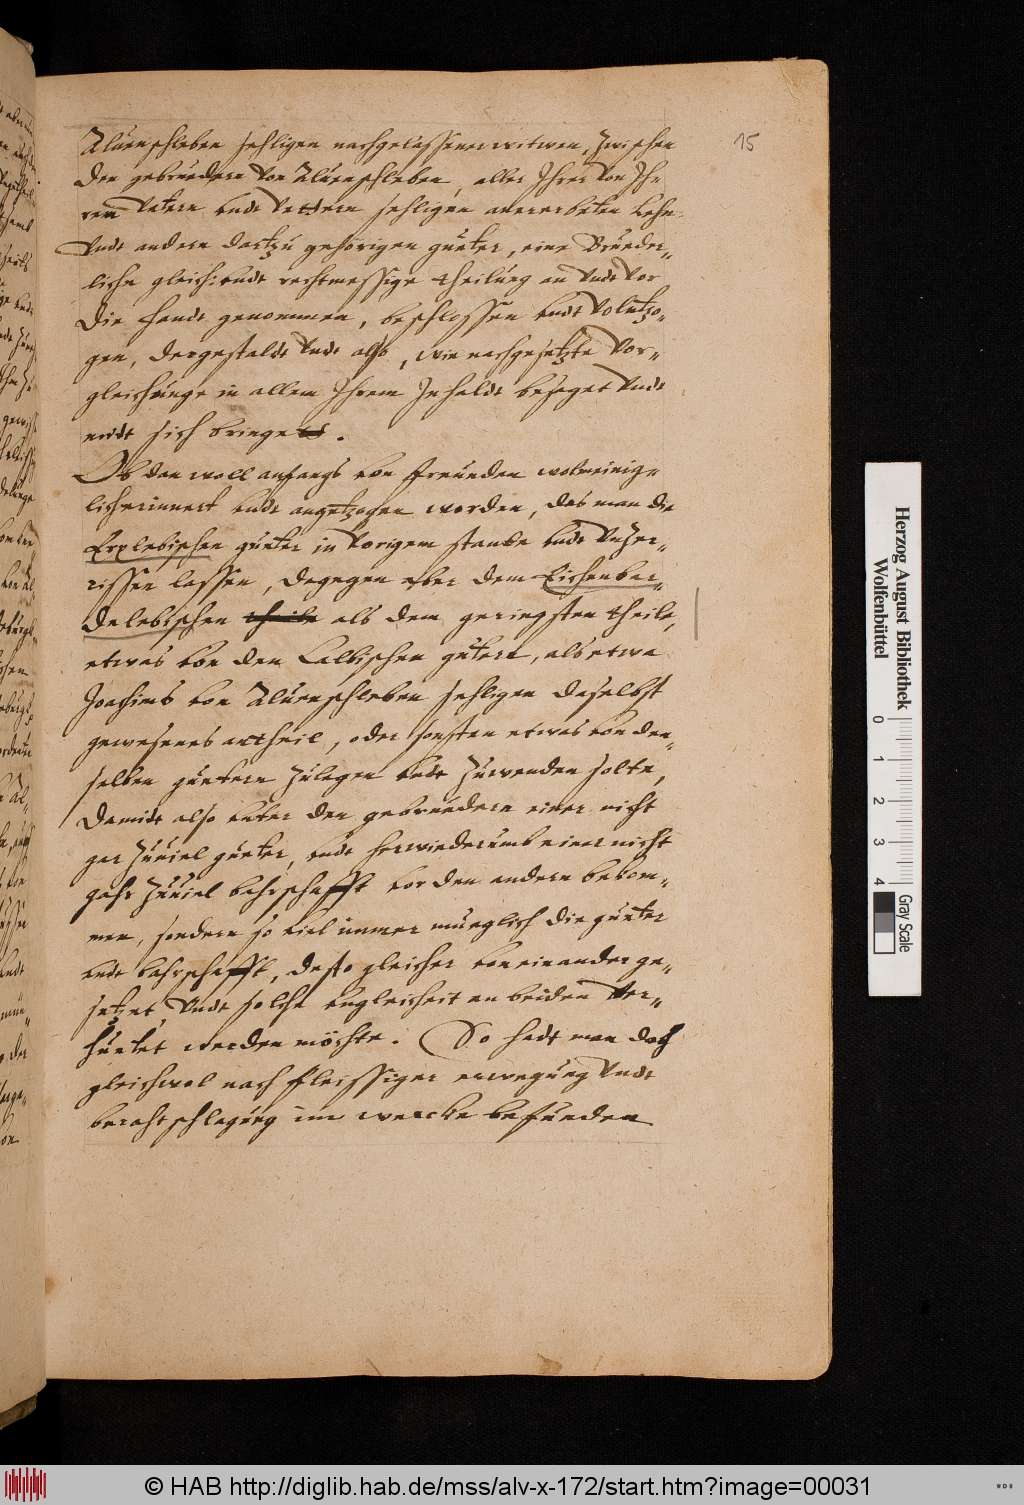 15
Aluenschleben sehligen nachgelassener witwen, Zwischen
den gebruedern von Aluenschleben, aller Ihrer von Ih-
ren Vetern undt Vettern sehligen anererbeten Lehn
Undt andern dartzu gehörigen güeter, eine Brueder-
liche gleich: undt rechtmessige theilung an Undt vor
die handt genommen, beschlossen undt Volntzo-
gen, dergestaldt Undt also, wie nachgesetzte Vor-
gleichunge in allem Ihrem Inhaldt besaget Undt
midt sich bringet.
Ob den woll anfangs von freunden wolmeinig-
lich erinnert undt angetzogen worden, das man die
Erxlebischen güeter in vorigem stande undt Unzer-
rissen lassen, dagegen aber dem Eichenbar-
delebischen theile als dem geringsten theile,
etwas von den Calbischen gütern, als etwa
Joachims von Aluenschleben sehligen daselbst
gewesenes antheil, oder sonsten etwas von den-
selben güetern Zulegen undt Zuwenden solte,
Damidt also unter den gebruedern einer nicht
gar Zuuiel güeter, undt herwiederumb einer nicht
gahr Zuuiel bahrschafft vor den andern bekom-
men, sondern so viel immer müeglich die güeter
undt bahrschafft, desto gleicher von einander ge-
setzet Undt solche ungleicheit an beiden Ver-
hüetet werden möchte. So hadt man doch
gleichwol nach fleissiger erwegung Undt
berahtschlagung im wercke befunden
Herzog August Bibliothek
Wolfenbüttel
0 1 2 3 4
Gray Scale
© HAB http://diglib.hab.de/mss/alv-x-172/start.htm?image=00031